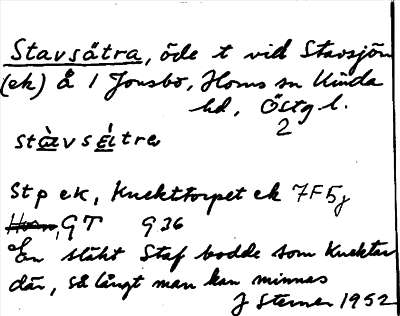 Stavsätra, öde t vid Stavsjön
(ek) å 1 Jonsbo, Horns sn Kinda
hd, Östg l.
2
stàvsétra
Stp ek, Knekttorpet ek 7F5j
Horn, GT 936
En släkt Staf bodde som Knektar
där, så långt man kan minnas
J Sterner 1952